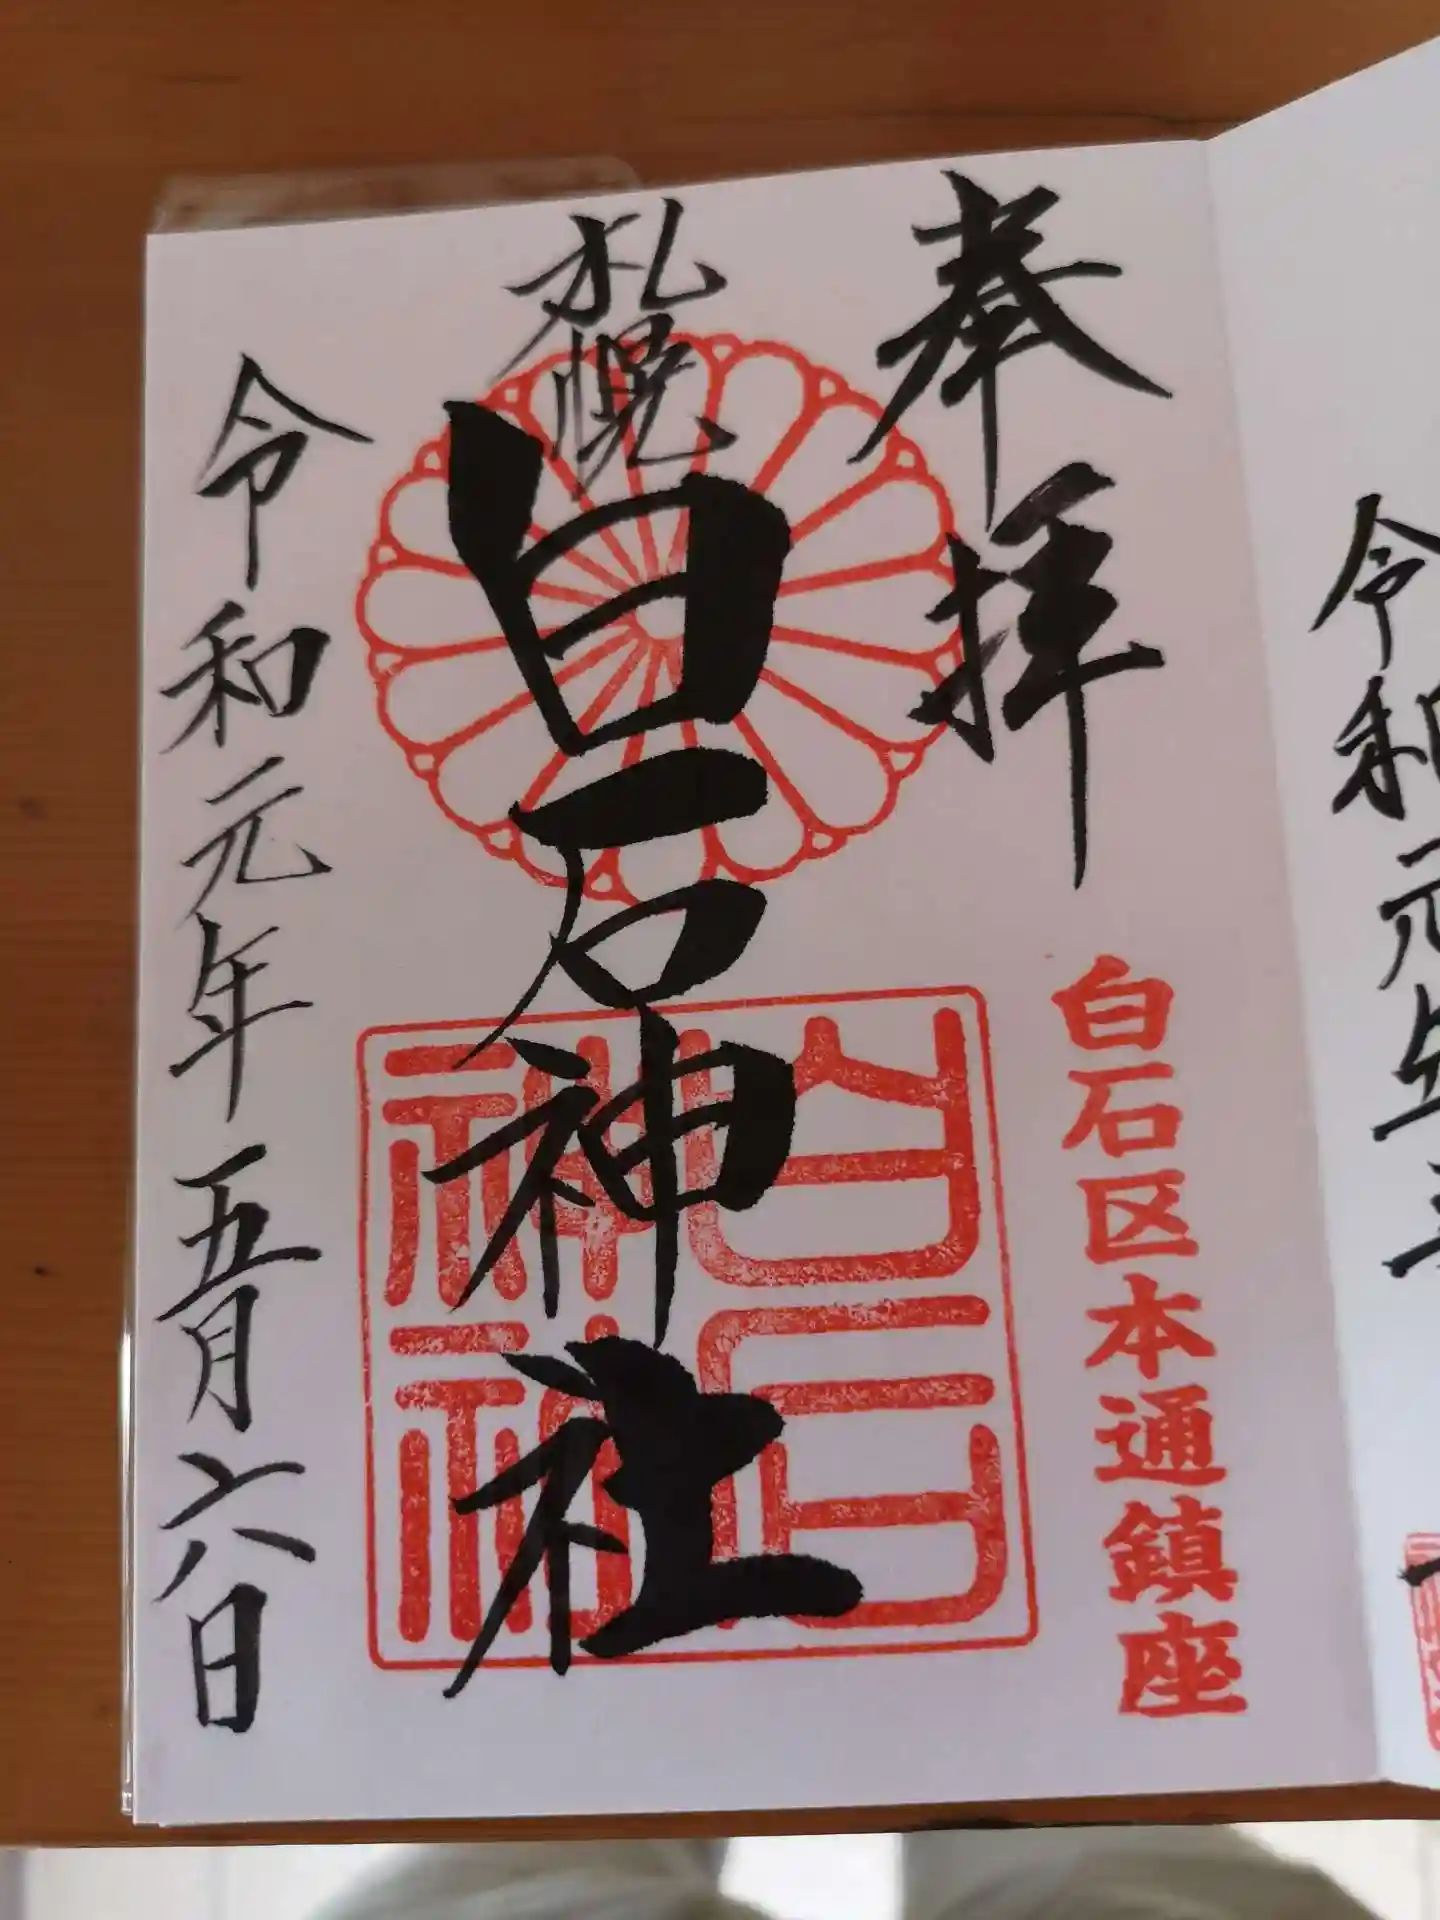 令和元年五
奉拝
白石区本通鎮座
札幌
白石神社
白石
神社
令和元年五月六日